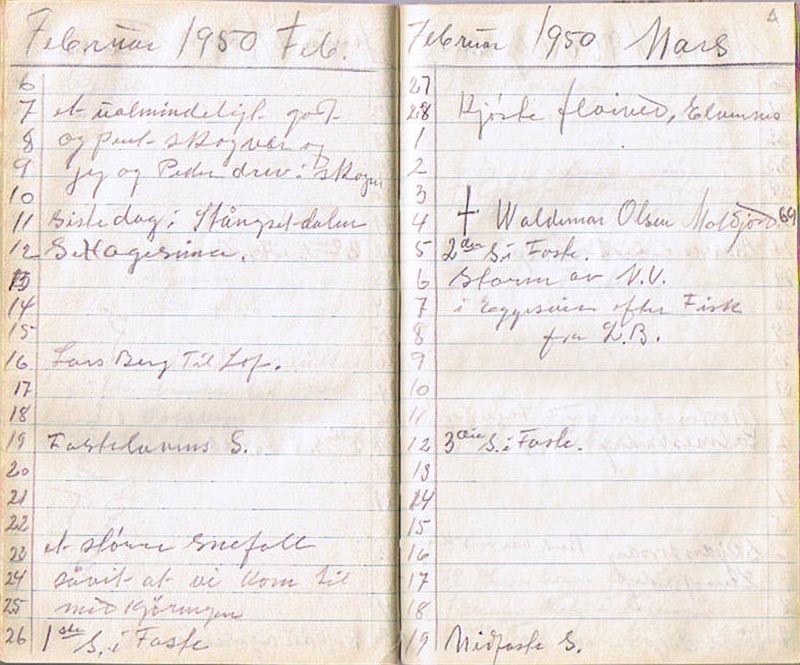 Februar 1950 Feb.
6
7 et ualmindeligt godt
8 og pent skogvær og
9 jeg og Peder drev i skogen
10
11 Siste dag i Stångset-dalen
12 S.
13
14
15
16 Lars Berg Til Lof.
17
18
19 Fastelavens S.
20
21
22
23 et større snefall
24 såvit at vi kom til
25 med Kjøringen
26 1ste S. i Faste
Februar 1950 Mars
27
28 Kjøste
1
2
3
4 † Waldemar Olsen 69
5 2den S. i Faste.
6 Storm av N.V.
7 i efter Fisk
8 fra L.B.
9
10
11
12 3die S. i Faste.
13
14
15
16
17
18
19 Midfaste S.